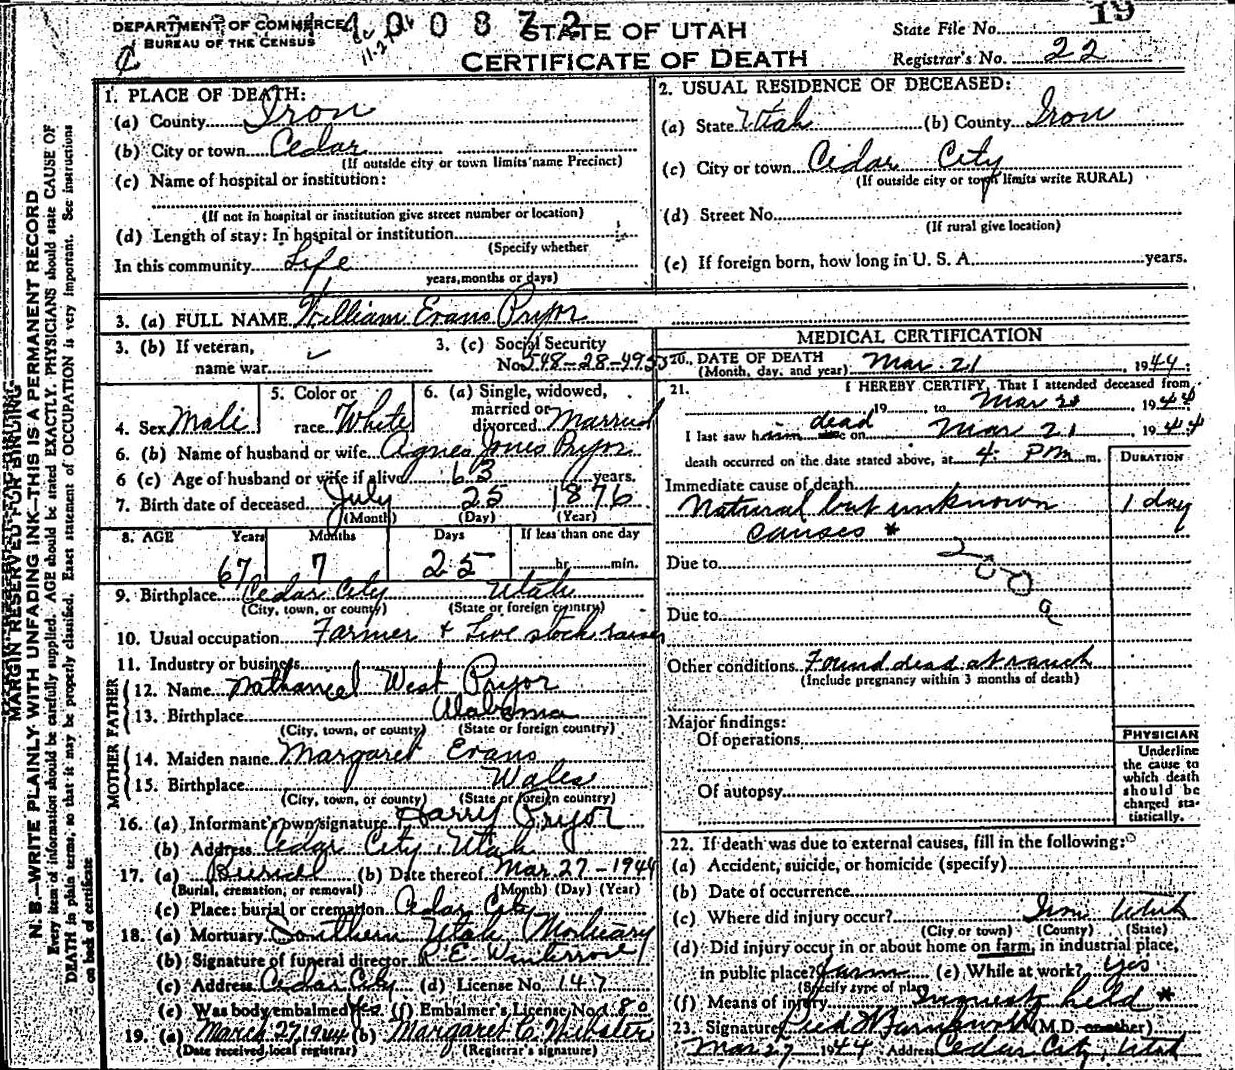 19
DEPARTMENT OF COMMERCE
BUREAU OF THE CENSUS
STATE OF UTAH
CERTIFICATE OF DEATH
State File No.
Registrar's No. 22
MARGIN RESERVED FOR BINDING
N. B.—WRITE PLAINLY WITH UNFADING INK—THIS IS A PERMANENT RECORD
Every item of information should be carefully supplied. AGE should be stated EXACTLY. PHYSICIANS should state CAUSE OF
DEATH in plain terms, so that it may be properly classified. Exact statement of OCCUPATION is very important. See instructions
on back of certificate
1. PLACE OF DEATH:
(a) County Iron
(b) City or town Cedar
(If outside city or town limits name Precinct)
(c) Name of hospital or institution:
(If not in hospital or institution give street number or location)
(d) Length of stay: In hospital or institution
(Specify whether
In this community Life
years, months or days)
2. USUAL RESIDENCE OF DECEASED:
(a) State Utah (b) County Iron
(c) City or town Cedar City
(If outside city or town limits write RURAL)
(d) Street No.
(If rural give location)
(e) If foreign born, how long in U. S. A. years.
3. (a) FULL NAME William Evans Pryor
3. (b) If veteran, name war
3. (c) Social Security No. 548-28-4955
4. Sex Male
5. Color or race White
6. (a) Single, widowed, married or divorced Married
6. (b) Name of husband or wife Agnes Jones Pryor
6 (c) Age of husband or wife if alive 63 years.
7. Birth date of deceased July 25 1876
(Month) (Day) (Year)
8. AGE Years Months Days If less than one day
67 7 25 hr. min.
9. Birthplace Cedar City Utah
(City, town, or county) (State or foreign country)
10. Usual occupation Farmer + Live stock raiser
11. Industry or business
FATHER
12. Name Nathaniel West Pryor
13. Birthplace Alabama
(City, town, or county) (State or foreign country)
MOTHER
14. Maiden name Margaret Evans
15. Birthplace Wales
(City, town, or county) (State or foreign country)
16. (a) Informant's own signature Harry Pryor
(b) Address Cedar City, Utah
17. (a) Burial (b) Date thereof Mar. 27-1944
(Burial, cremation, or removal) (Month) (Day) (Year)
(c) Place: burial or cremation Cedar City
18. (a) Mortuary Southern Utah Mortuary
(b) Signature of funeral director
(c) Address Cedar City (d) License No. 147
(e) Was body embalmed Yes (f) Embalmer's License No. 180
19. (a) March 27, 1944 (b) Margaret C. Webster
(Date received, local registrar) (Registrar's signature)
MEDICAL CERTIFICATION
20. DATE OF DEATH Mar. 21, 1944.
(Month, day, and year)
21. I HEREBY CERTIFY, That I attended deceased from
19 to Mar 21 1944
I last saw him dead on Mar 21 1944
death occurred on the date stated above, at 4 PM m.
DURATION
Immediate cause of death
Natural but unknown 1 day
causes *
Due to
Due to
Other conditions Found dead at ranch
(Include pregnancy within 3 months of death)
Major findings:
Of operations
Of autopsy
PHYSICIAN
Underline
the cause to
which death
should be
charged sta-
tistically.
22. If death was due to external causes, fill in the following:
(a) Accident, suicide, or homicide (specify)
(b) Date of occurrence
(c) Where did injury occur? Iron Utah
(City or town) (County) (State)
(d) Did injury occur in or about home on farm, in industrial place,
in public place? farm (e) While at work? yes
(Specify type of place)
(f) Means of injury Inquest held *
23. Signature Reed W Farnsworth (M.D. or other)
Mar 27 1944 Address Cedar City, Utah